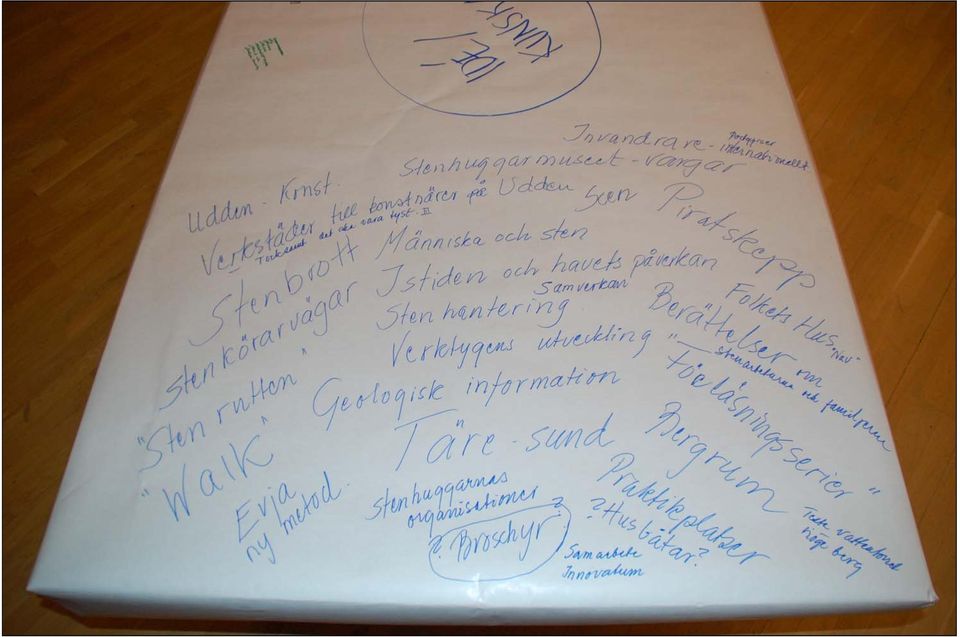 IDÉ!
KUNSK
Invandrare - internationellt
Stenhuggarmuseet - vargar
Udden - Konst.
Verkstäder till konstnärer på Udden
ska vara tyst. II
5xen Piratskepp
Stenbrott Människa och sten
Stenkörarvägar Istiden och havets påverkan
Samverkan
Stenhantering
Folkets Hus "nav"
Berättelser om
"— stenarbetarna och familjerna
"Stenrutten" Verktygens utveckling
"Walk" Geologisk information
Föreläsningsserier"
Täre - sund Bergrum
Evja
ny metod.
Stenhuggarnas
organisationer
? Broschyr ?
Praktikplatser
? Husbåtar?
Samarbete
Innovatum
berg